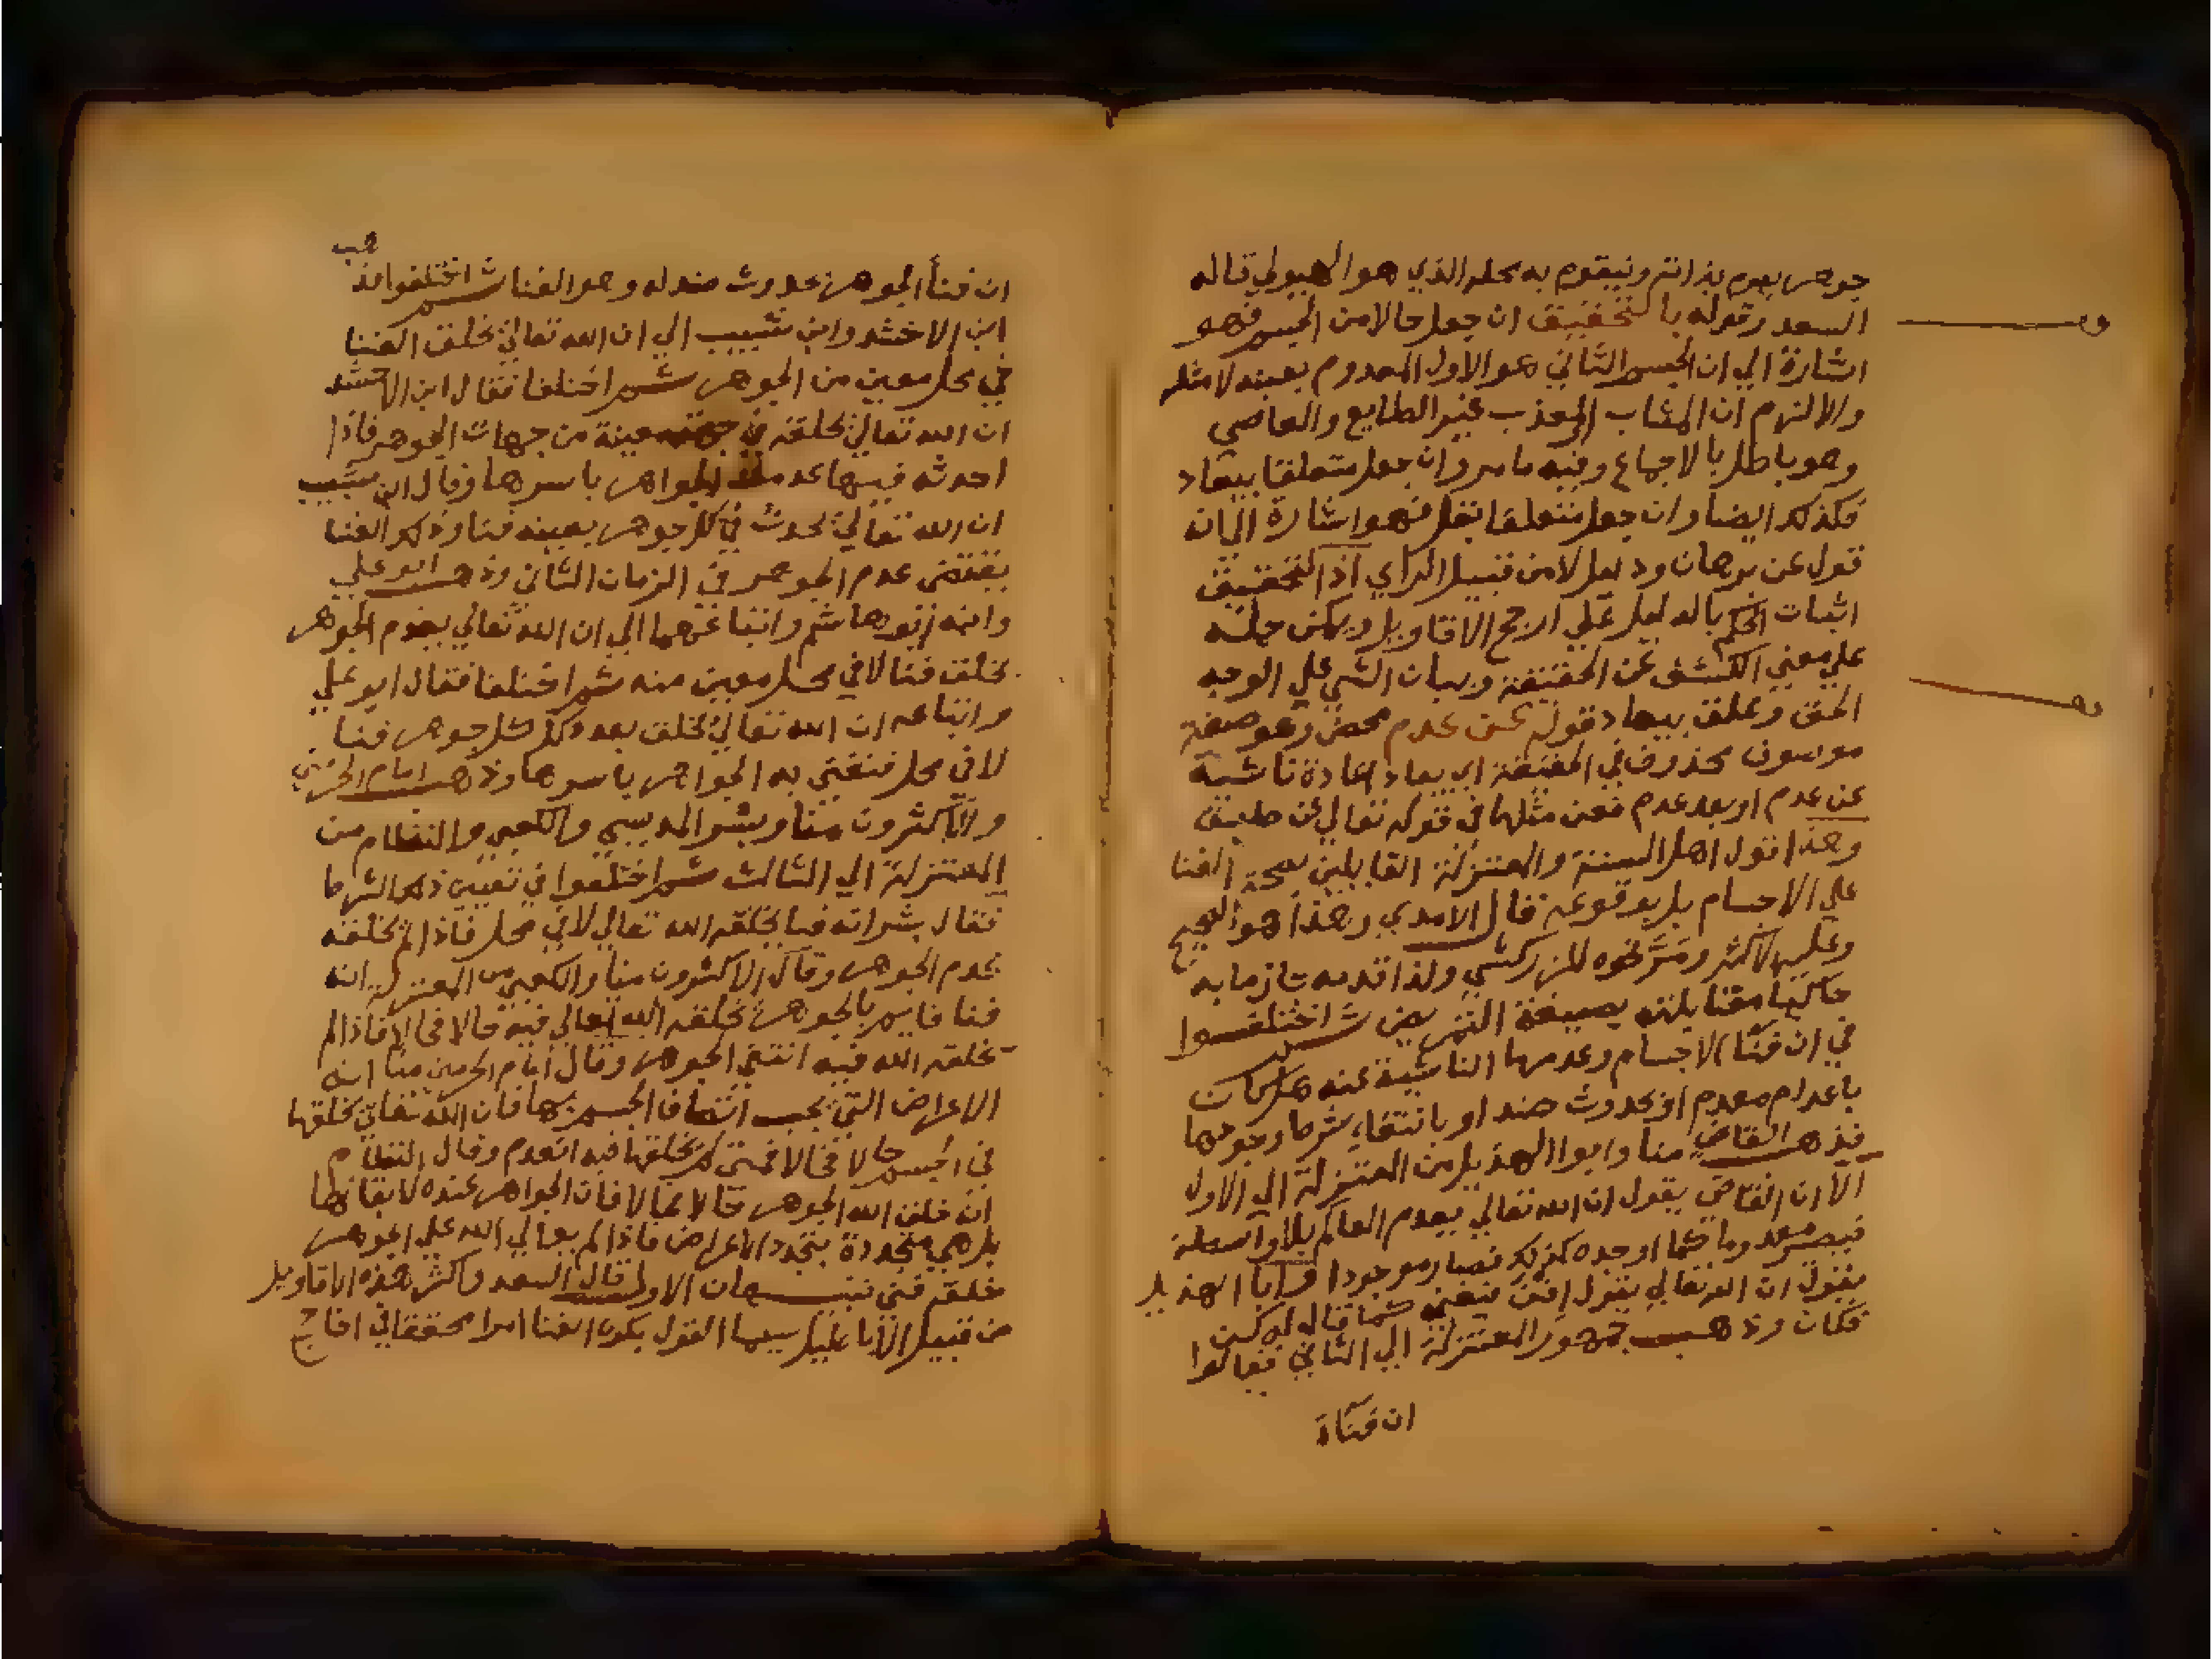 جوهر يقوم بذاته ويتقوم به محله الذي هو الهيولي قاله
السعد وقوله بالتحقيق ان جعل حالا من الجسم فهو
اشارة الي ان الجسم الثاني هو الاول المعدوم بعينه لا مثله
والا لزم ان المثاب او المعذب غير الطايع والعاصي
وهو باطل بالاجماع وفيه ما مر وان جعل متعلقا بيعاد
فكذلك ايضا وان جعل متعلقا بقل فهو اشارة الي انه
قول عن برهان ودليل لا من قبيل الراي اذ التحقيق
اثبات الحكم بالدليل علي ارجح الاقاويل ويمكن حمله
علي معني الكشف عن الحقيقة وبيان الشي علي الوجه
الحق وعلق بيعاد قوله عن عدم محض وهو صفة
موصوف محذوف في الحقيقة اي يعاد اعادة ناشية
عن عدم او بعد عدم فعن مثلها في قوله تعالي عن طبق
وهذا قول اهل السنة والمعتزلة القايلين بصحة الفنا
علي الاجسام بل بوقوعه قال الامدي وهذا هو الصحيح
وعليه الاكثر ومر نحوه للزركشي ولذا قدمه جازما به
حاكيا مقابلته بصيغة التمريض ثم اختلفوا
في ان فنا الاجسام وعدمها الناشية عنه هل كان
باعدام معدم او بحدوث ضد او بانتفاء شرط وجودها
فذهب القاضي منا وابوا الهذيل من المعتزلة الي الاول
الا ان القاضي يقول ان الله تعالي يعدم العالم بلا واسطة
فيصير معدوما كما اوجده كذلك فصار موجودا وابا الهذيل
يقول ان الله تعالي يقول افن فيفني كما قال له كن
فكان وذهب جمهور المعتزلة الي الثاني فقالوا
ان فناء
ان فنأ الجوهر بحدوث ضد له وهو الفنا ثم اختلفوا فذ
هب
ابن الاخشد وابن شبيب الي ان الله تعالي يخلق الفنا
في محل معين من الجوهر ثم اختلفا فقال ابن الاخشد
ان الله تعالي يخلقه في جهة معينة من جهات الجوهر فاذا
احدثه فيها عدمت الجواهر باسرها وقال ابن شبيب
ان الله تعالي يحدث في كل جوهر بعينه فنا وذلك الفنا
يقتضي عدم الجوهر في الزمان الثاني وذهب ابو علي
وابنه ابو هاشم واتباعهما الي ان الله تعالي يعدم الجوهر
بخلق فنا لا في محل معين منه ثم اختلفا فقال ابو علي
واتباعه ان الله تعالي يخلق بعدد كل جوهر فنا
لا في محل فتفني به الجواهر باسرها وذهب امام الحرمين
والاكثرون منا وبشر المريسي والكعبي والنظام من
المعتزلة الي الثالث ثم اختلفوا في تعيين ذلك الشرط
فقال بشر انه فنا يخلقه الله تعالي لا في محل فاذا لم يخلقه
عدم الجوهر وقال الاكثرون منا والكعبي من المعتزلة انه
فنا قايم بالجوهر يخلقه الله تعالي فيه حالا فحالا فاذا لم
يخلقه الله فيه انتفي الجوهر وقال امام الحرمين منا انه
الاعراض التي يجب اتصاف الجسم بها فان الله تعالي يخلقها
في الجسم حالا فحالا فمتي لم يخلقها فيه انعدم وقال النظام
ان خلق الله الجوهر حالا فحالا فان الجواهر عنده لا بقا لها
بل هي متجددة بتجدد الاعراض فاذا لم يوالي الله علي الجوهر
خلقه فني تنبيهان الاول قال السعد واكثر هذه الاقاويل
من قبيل الاباطيل سيما القول بكون الفنا امرا محققا في الخارج